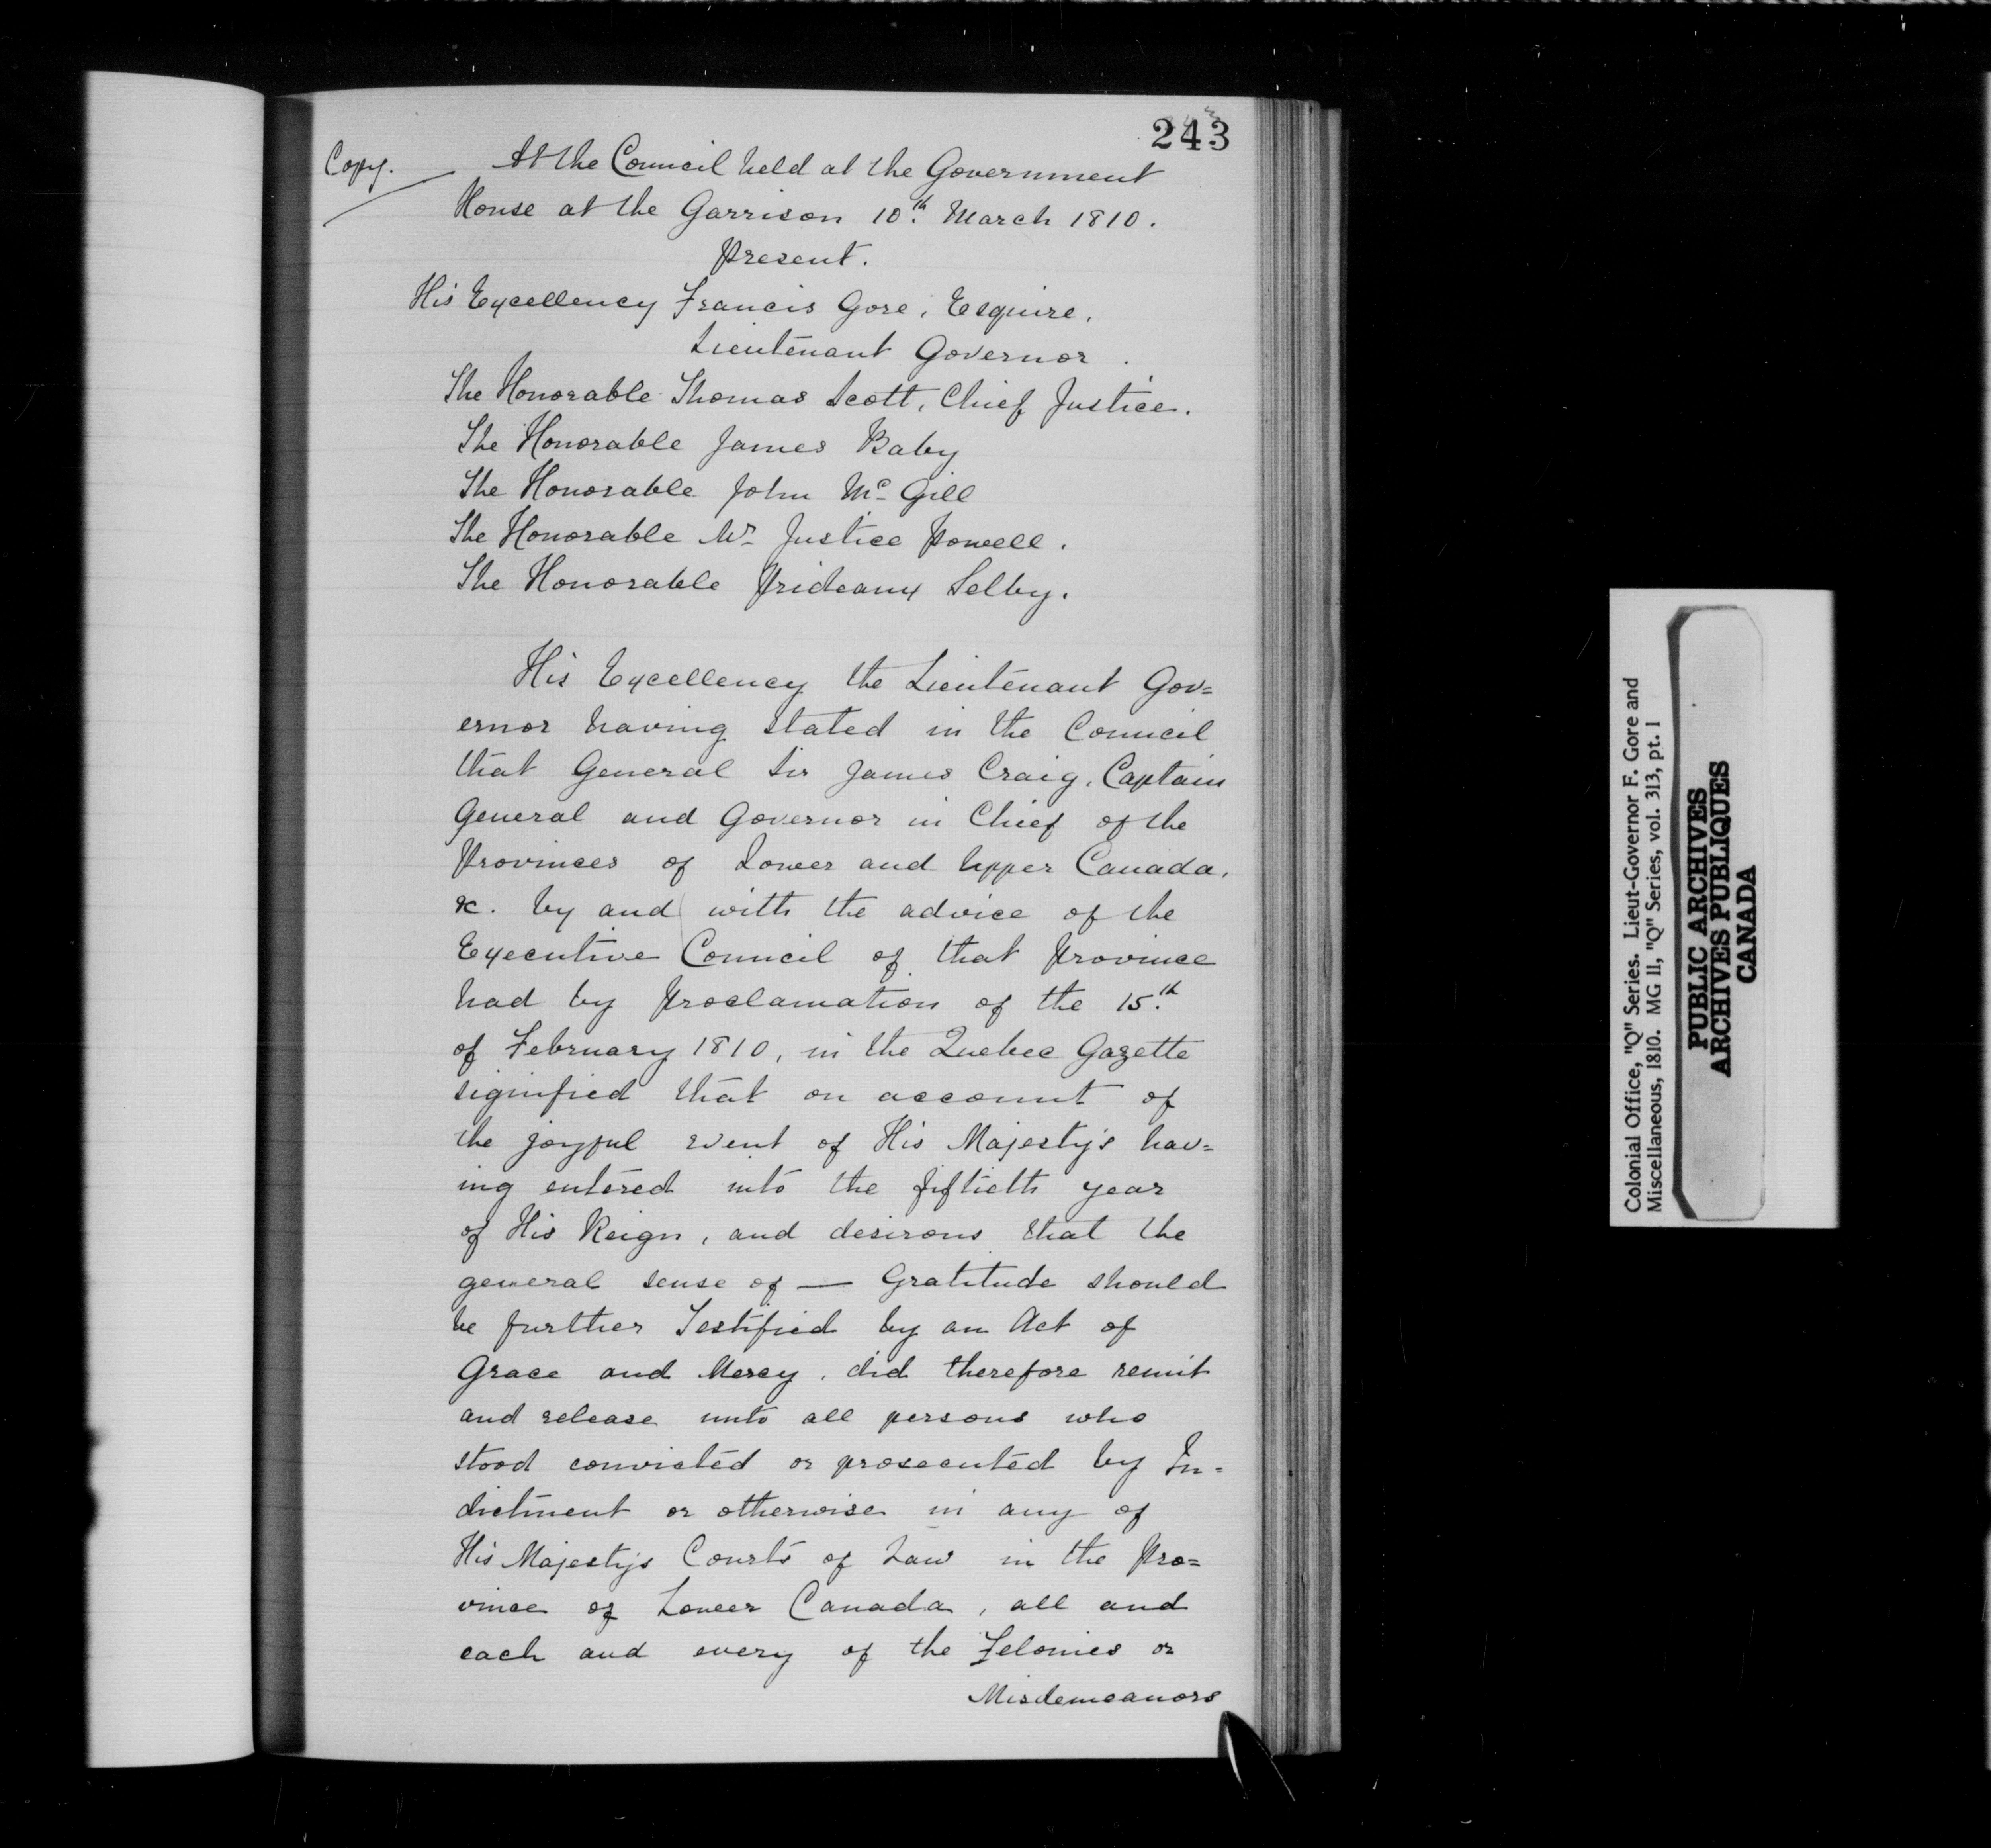 243
Copy.
At the Council held at the Government
House at the Garrison 10th March 1810.
Present.
His Excellency Francis Gore, Esquire,
Lieutenant Governor.
The Honorable Thomas Scott, Chief Justice.
The Honorable James Baby
The Honorable John Mc Gill
The Honorable Mr Justice Powell.
The Honorable Prideaux Selby.
His Excellency the Lieutenant Gov=
ernor having stated in the Council
that General Sir James Craig, Captain
General and Governor in Chief of the
Provinces of Lower and Upper Canada,
&c. by and with the advice of the
Executive Council of that Province
had by Proclamation of the 15th
of February 1810, in the Quebec Gazette
signified that on account of
the joyful event of His Majesty's hav=
ing entered into the fiftieth year
of His Reign, and desirous that the
general sense of — Gratitude should
be further Testified by an Act of
Grace and Mercy, did therefore remit
and release unto all persons who
stood convicted or prosecuted by In=
dictment or otherwise in any of
His Majesty's Courts of Law in the Pro=
vince of Lower Canada, all and
each and every of the Felonies or
Misdemeanors
Colonial Office, "Q" Series. Lieut-Governor F. Gore and
Miscellaneous, 1810. MG 11, "Q" Series, vol. 313, pt. 1
PUBLIC ARCHIVES
ARCHIVES PUBLIQUES
CANADA